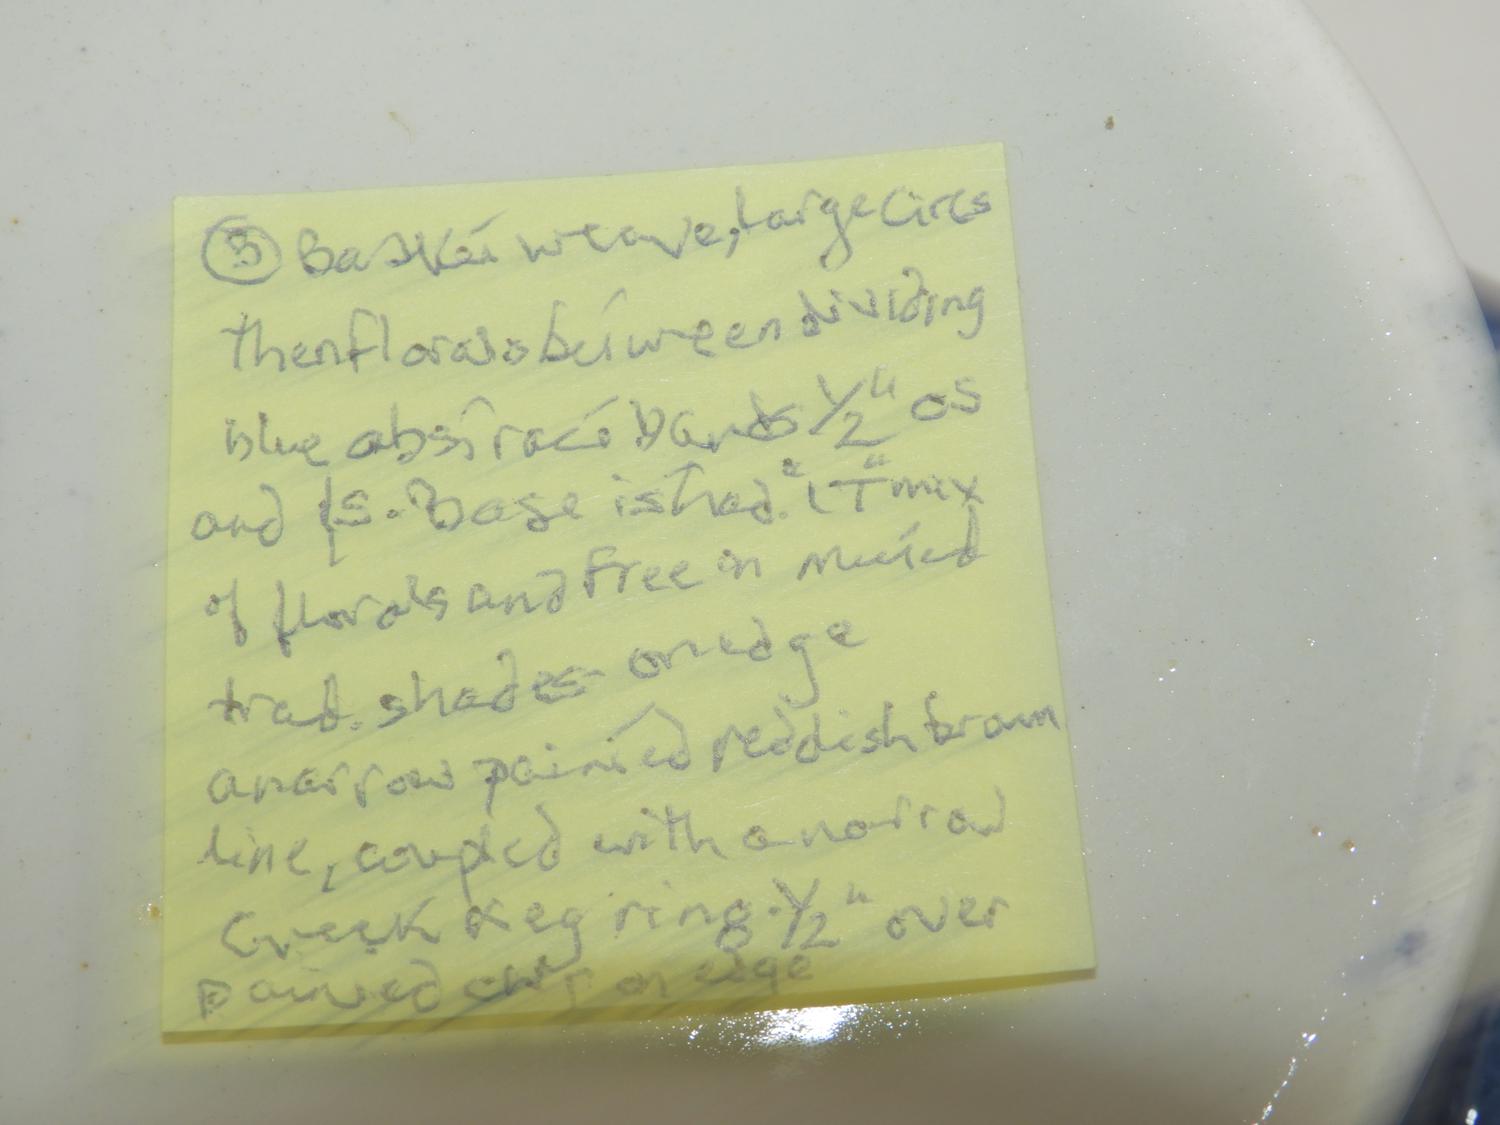 ③ Basket weave, large circs
then florals between dividing
blue abstract bands 1/2" os
and is. Base is trad. "LT" mix
of florals and free in muted
trad. shades on edge
a narrow painted reddish brown
line, coupled with a narrow
Greek Key ring. 1/2" over
painted chip on edge